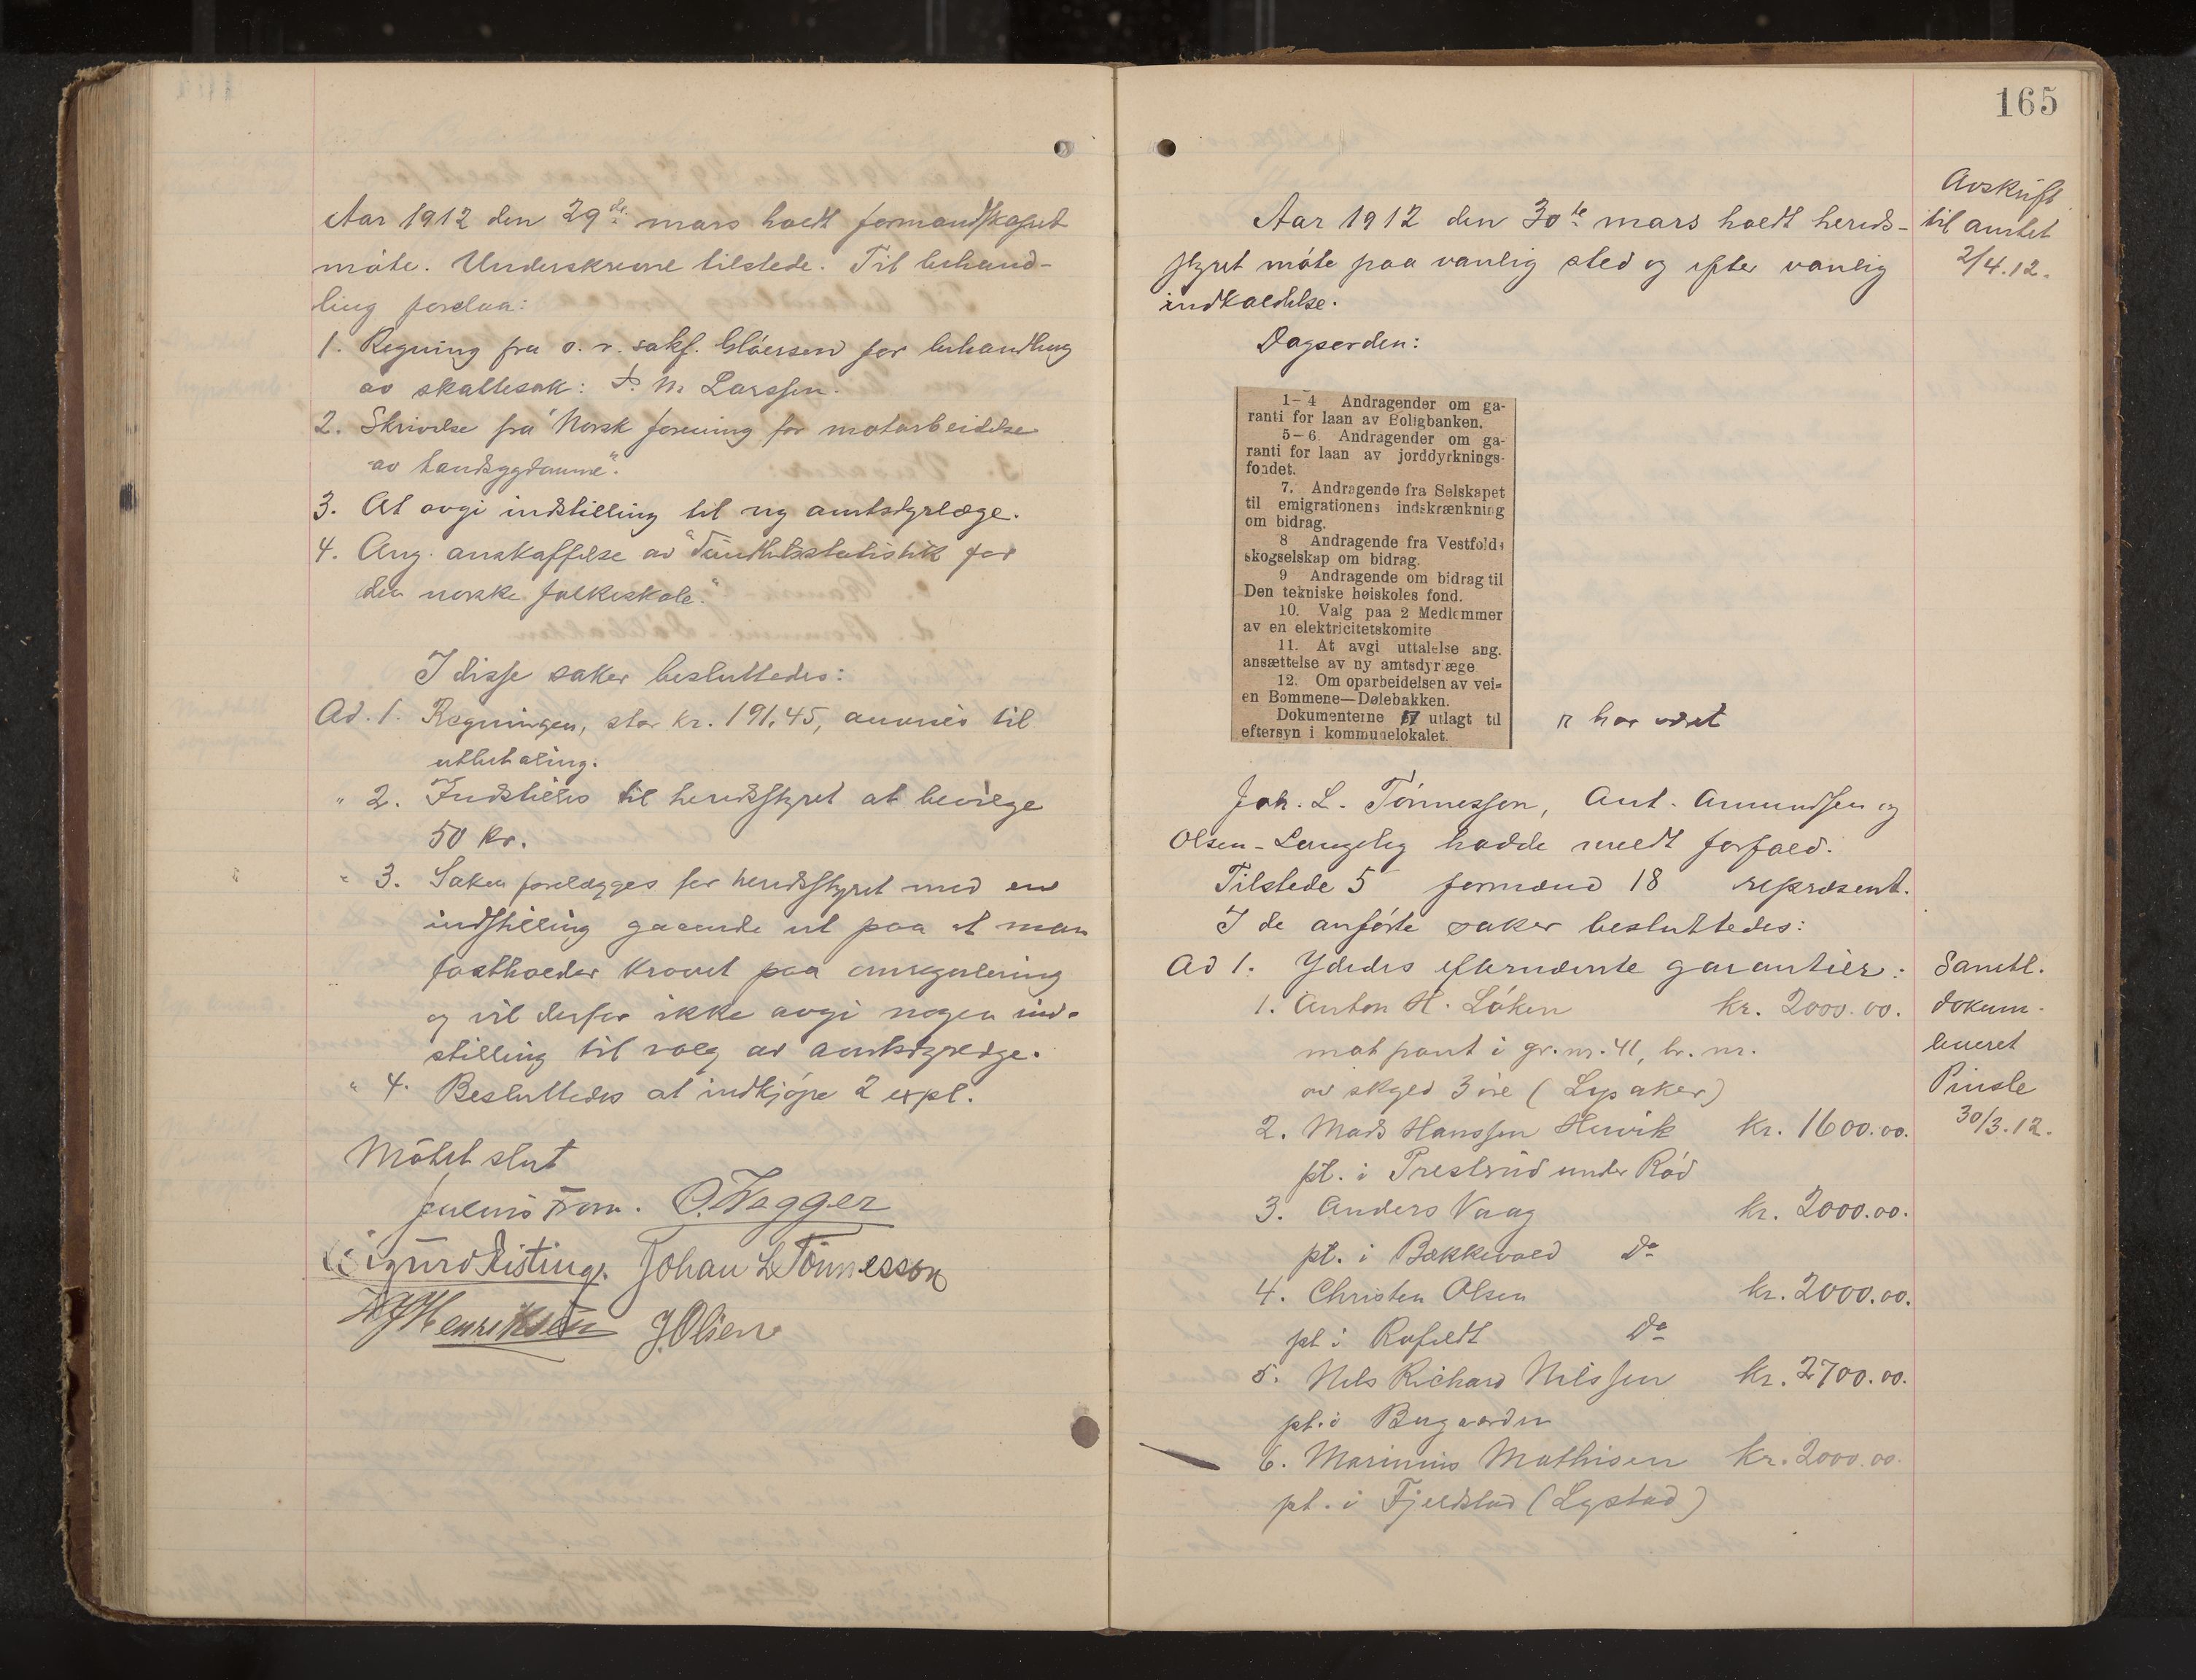 Aar 1912 den 29de mars holdt formandskapet
møte. Underskrevne tilstede. Til behand-
ling forelaa:
1. Regning fra o. r. sakf. for behandling
av skattesak: N. Larssen.
2. Skrivelse fra "Norsk forening for motarbeidelse
av tandsygdomme".
3. At avgi indstilling til ny amtsdyrlæge.
4. Ang. anskaffelse av "Tündhetsstatistik for
den norske folkeskole."
I disse saker besluttedes:
Ad. 1. Regningen, stor kr. 191,45, anvises til
utbetaling.
" 2. Indstilles til heredsstyret at bevilge
50 kr.
" 3. Saken forelægges for heredsstyret med en
indstilling gaaende ut paa at man
fastholder kravet paa omregulering
og vil derfor ikke avgi nogen ind-
stilling til valg av amtsdyrlæge.
" 4. Besluttedes at indkjøpe 2 expl.
Møtet slut
Julius Fron. O. Wegger
Sigurd Risting. Johan L Tønnesson
Henriksen J. Olsen
165
Aar 1912 den 30te mars holdt hereds-
styret møte paa vanlig sted og efter vanlig
indkaldelse.
Avskrift
til amtet
2/4.12.
Dagsorden:
1-4 Andragender om ga-
ranti for laan av Boligbanken.
5-6. Andragender om ga-
ranti for laan av jorddyrknings-
fondet.
7. Andragende fra Selskapet
til emigrationens indskrænkning
om bidrag.
8 Andragende fra Vestfolds
skogselskap om bidrag.
9 Andragende om bidrag til
Den tekniske høiskoles fond.
10. Valg paa 2 Medlemmer
av en elektricitetskomite
11. At avgi uttalelse ang.
ansættelse av ny amtsdyrlæge
12. Om oparbeidelsen av vei-
en Bommene—Dølebakken.
Dokumenterne utlagt til
eftersyn i kommunelokalet.
har været
Joh. L. Tønnesson, Ant. Amundsen og
Olsen-Langeby hadde meldt forfald.
Tilstede 5 formænd 18 repræsent.
I de anførte saker besluttedes:
Ad 1. Ydedes efternævnte garantier:
1. Anton H. Løken kr. 2000.00.
mot pant i gr.nr. 41, br. nr.
av skyld 3 øre (Lysaker)
2. Mads Hanssen Hervik kr. 1600.00.
pt. i Prestrud under Rød
3. Anders Vaag kr. 2000.00.
pt. i Bækkevold Do
4. Christen Olsen kr. 2000.00.
pt i Do
5. Nils Richard Nilssen kr. 2700.00.
pt. i
6. Marinius Mathisen kr. 2000.00.
pt. i Fjeldstad (Lystad)
Samtl.
dokum-
leveret
Pinsle
30/3.12.